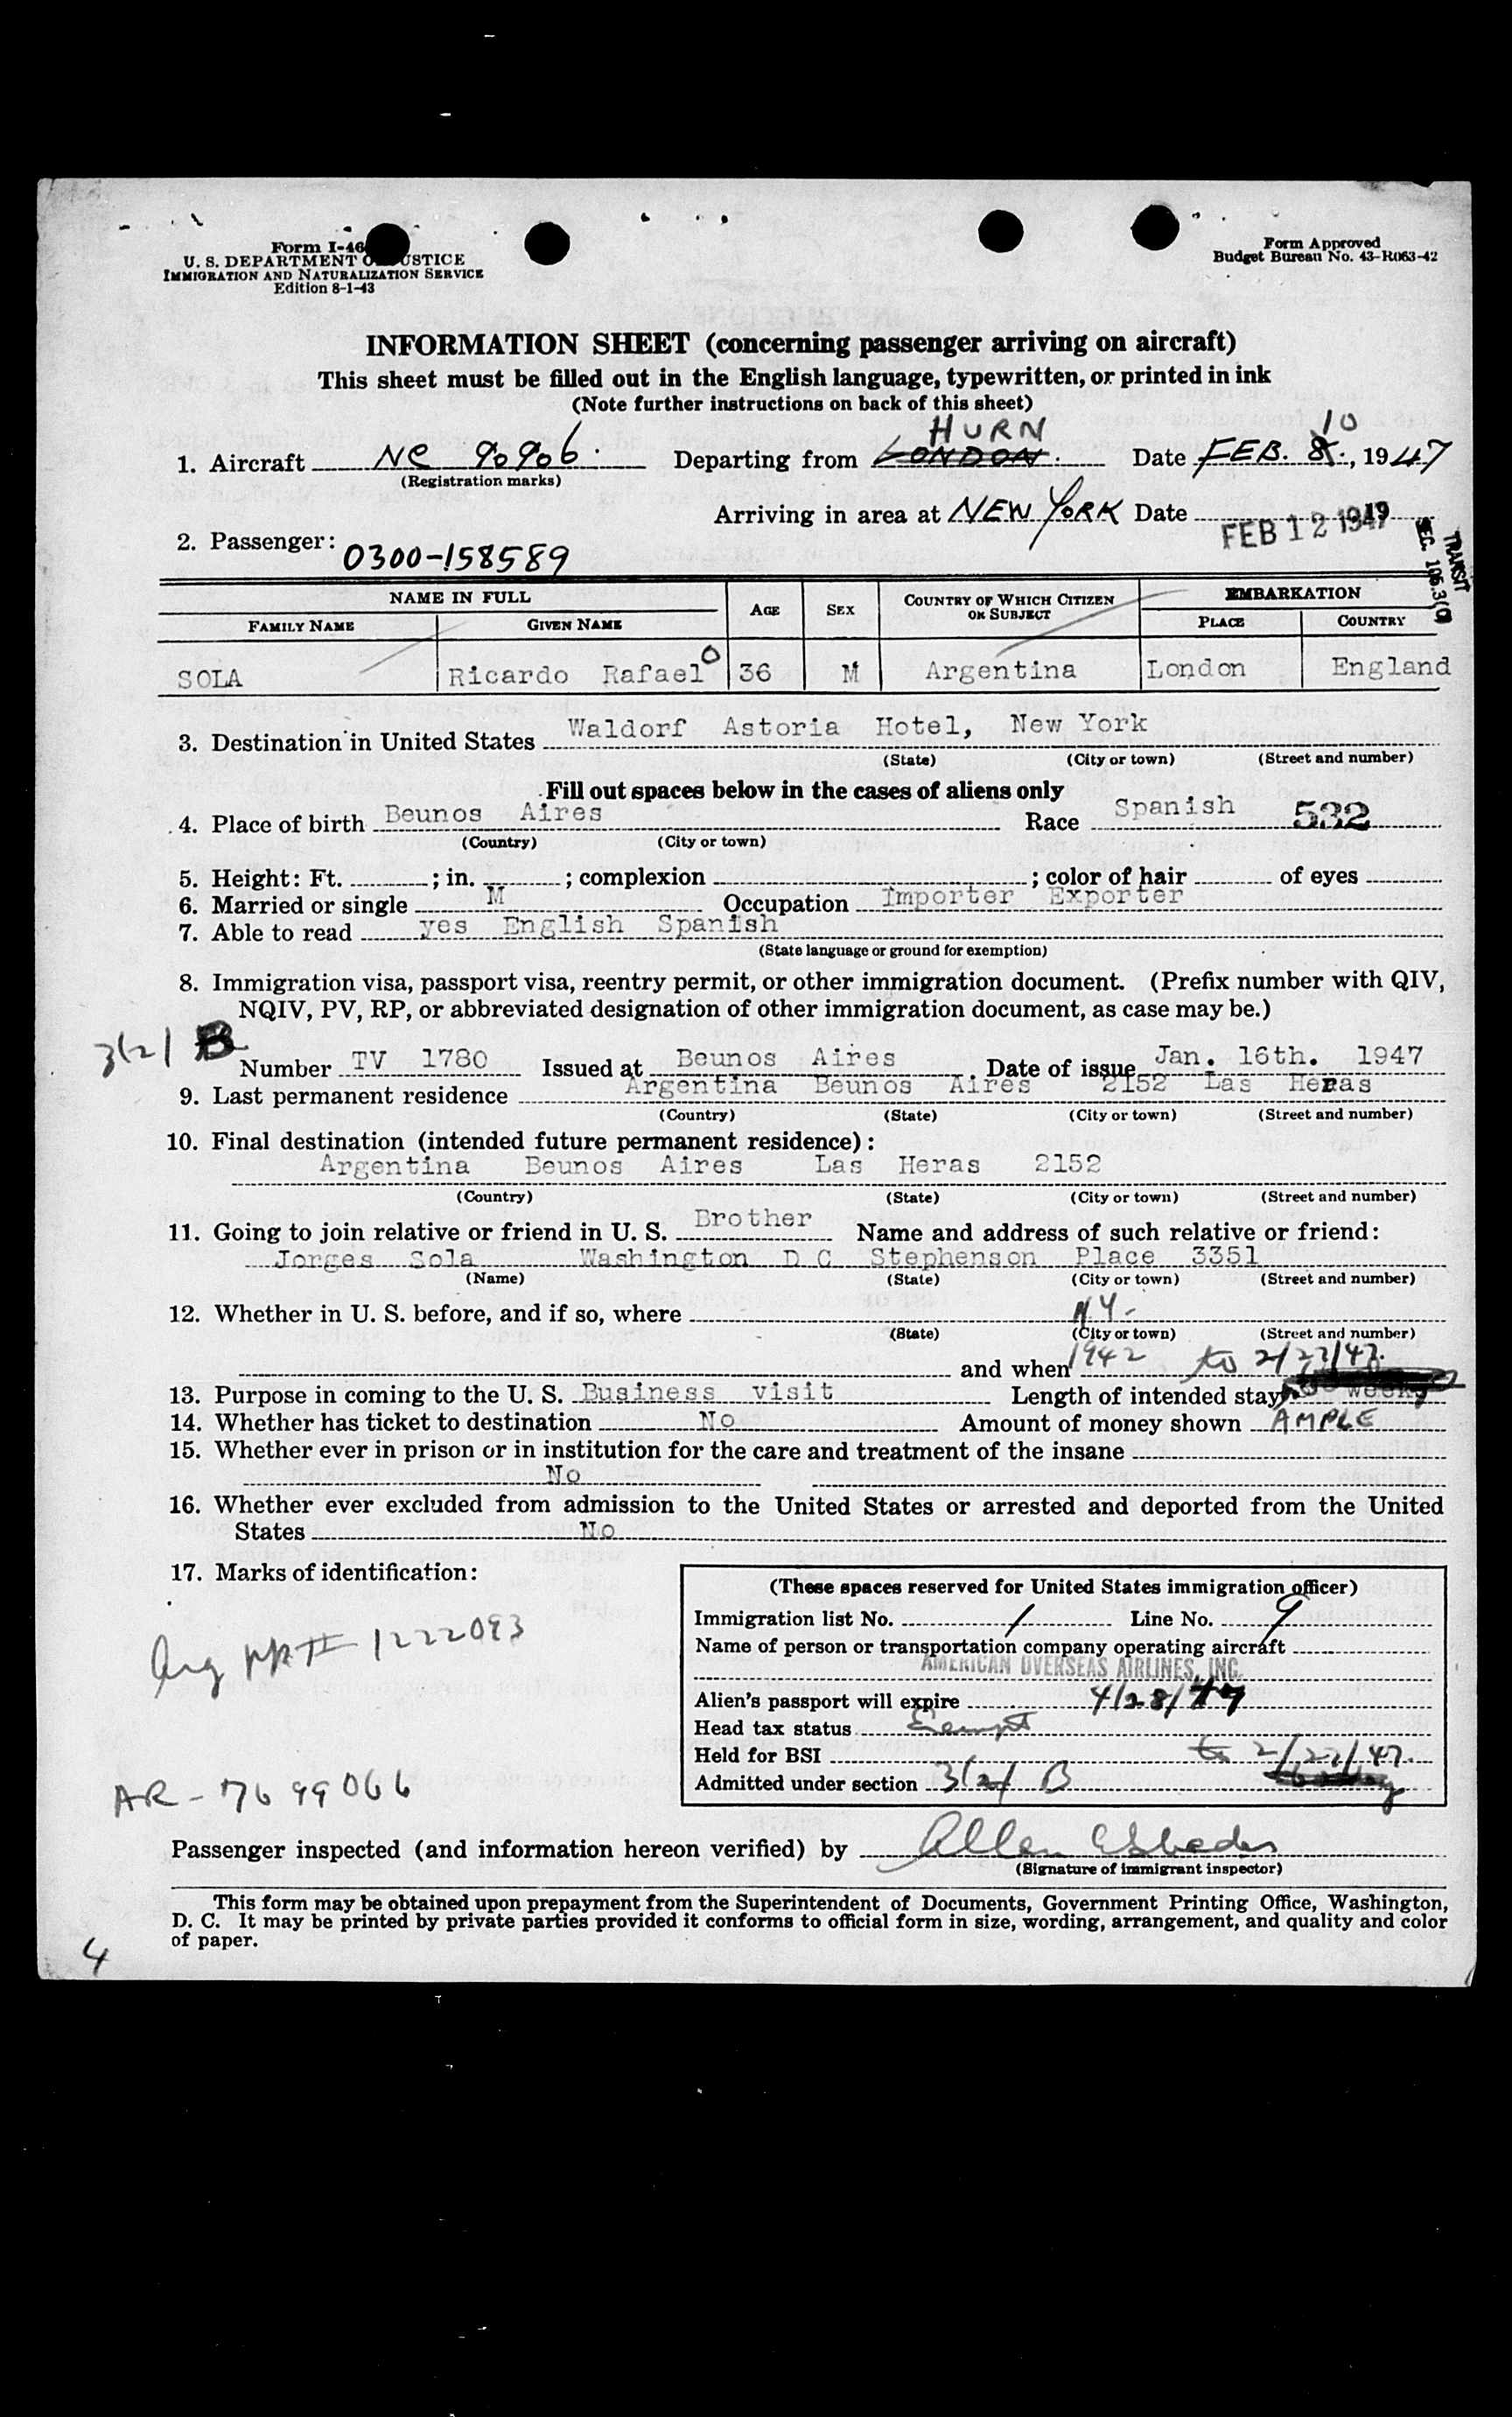 Form I-46
U. S. DEPARTMENT OF JUSTICE
IMMIGRATION AND NATURALIZATION SERVICE
Edition 8-1-43
Form Approved
Budget Bureau No. 43-R063-42
INFORMATION SHEET (concerning passenger arriving on aircraft)
This sheet must be filled out in the English language, typewritten, or printed in ink
(Note further instructions on back of this sheet)
HURN 10
1. Aircraft NC 90906. Departing from LONDON. Date FEB. 8., 1947
(Registration marks)
Arriving in area at NEW YORK Date FEB 12 1947
2. Passenger: 0300-158589
TRANSIT
SEC. 105.3(C)
NAME IN FULL AGE SEX COUNTRY OF WHICH CITIZEN OR SUBJECT EMBARKATION
FAMILY NAME GIVEN NAME PLACE COUNTRY
SOLA Ricardo Rafael O 36 M Argentina London England
3. Destination in United States Waldorf Astoria Hotel, New York
(State) (City or town) (Street and number)
Fill out spaces below in the cases of aliens only
4. Place of birth Beunos Aires Race Spanish 532
(Country) (City or town)
5. Height: Ft. ; in. ; complexion ; color of hair of eyes
6. Married or single M Occupation Importer Exporter
7. Able to read yes English Spanish
(State language or ground for exemption)
8. Immigration visa, passport visa, reentry permit, or other immigration document. (Prefix number with QIV,
NQIV, PV, RP, or abbreviated designation of other immigration document, as case may be.)
3(2) B
Number TV 1780 Issued at Beunos Aires . Date of issue Jan. 16th. 1947
9. Last permanent residence Argentina Beunos Aires 2152 Las Heras
(Country) (State) (City or town) (Street and number)
10. Final destination (intended future permanent residence):
Argentina Beunos Aires Las Heras 2152
(Country) (State) (City or town) (Street and number)
11. Going to join relative or friend in U. S. Brother Name and address of such relative or friend:
Jorges Sola Washington D C Stephenson Place 3351
(Name) (State) (City or town) (Street and number)
12. Whether in U. S. before, and if so, where NY-
(State) (City or town) (Street and number)
and when 1942 to 2/27/47.
13. Purpose in coming to the U. S. Business visit Length of intended stay weeks
14. Whether has ticket to destination No Amount of money shown AMPLE
15. Whether ever in prison or in institution for the care and treatment of the insane
No
16. Whether ever excluded from admission to the United States or arrested and deported from the United
States No
17. Marks of identification:
Arg PP# 1222093
AR-7699066
(These spaces reserved for United States immigration officer)
Immigration list No. 1 Line No. 9
Name of person or transportation company operating aircraft
AMERICAN OVERSEAS AIRLINES, INC.
Alien's passport will expire 4/28/47
Head tax status Exempt
Held for BSI to 2/27/47.
Admitted under section 3(2) B
Passenger inspected (and information hereon verified) by Allen
(Signature of immigrant inspector)
This form may be obtained upon prepayment from the Superintendent of Documents, Government Printing Office, Washington,
D. C. It may be printed by private parties provided it conforms to official form in size, wording, arrangement, and quality and color
of paper.
4